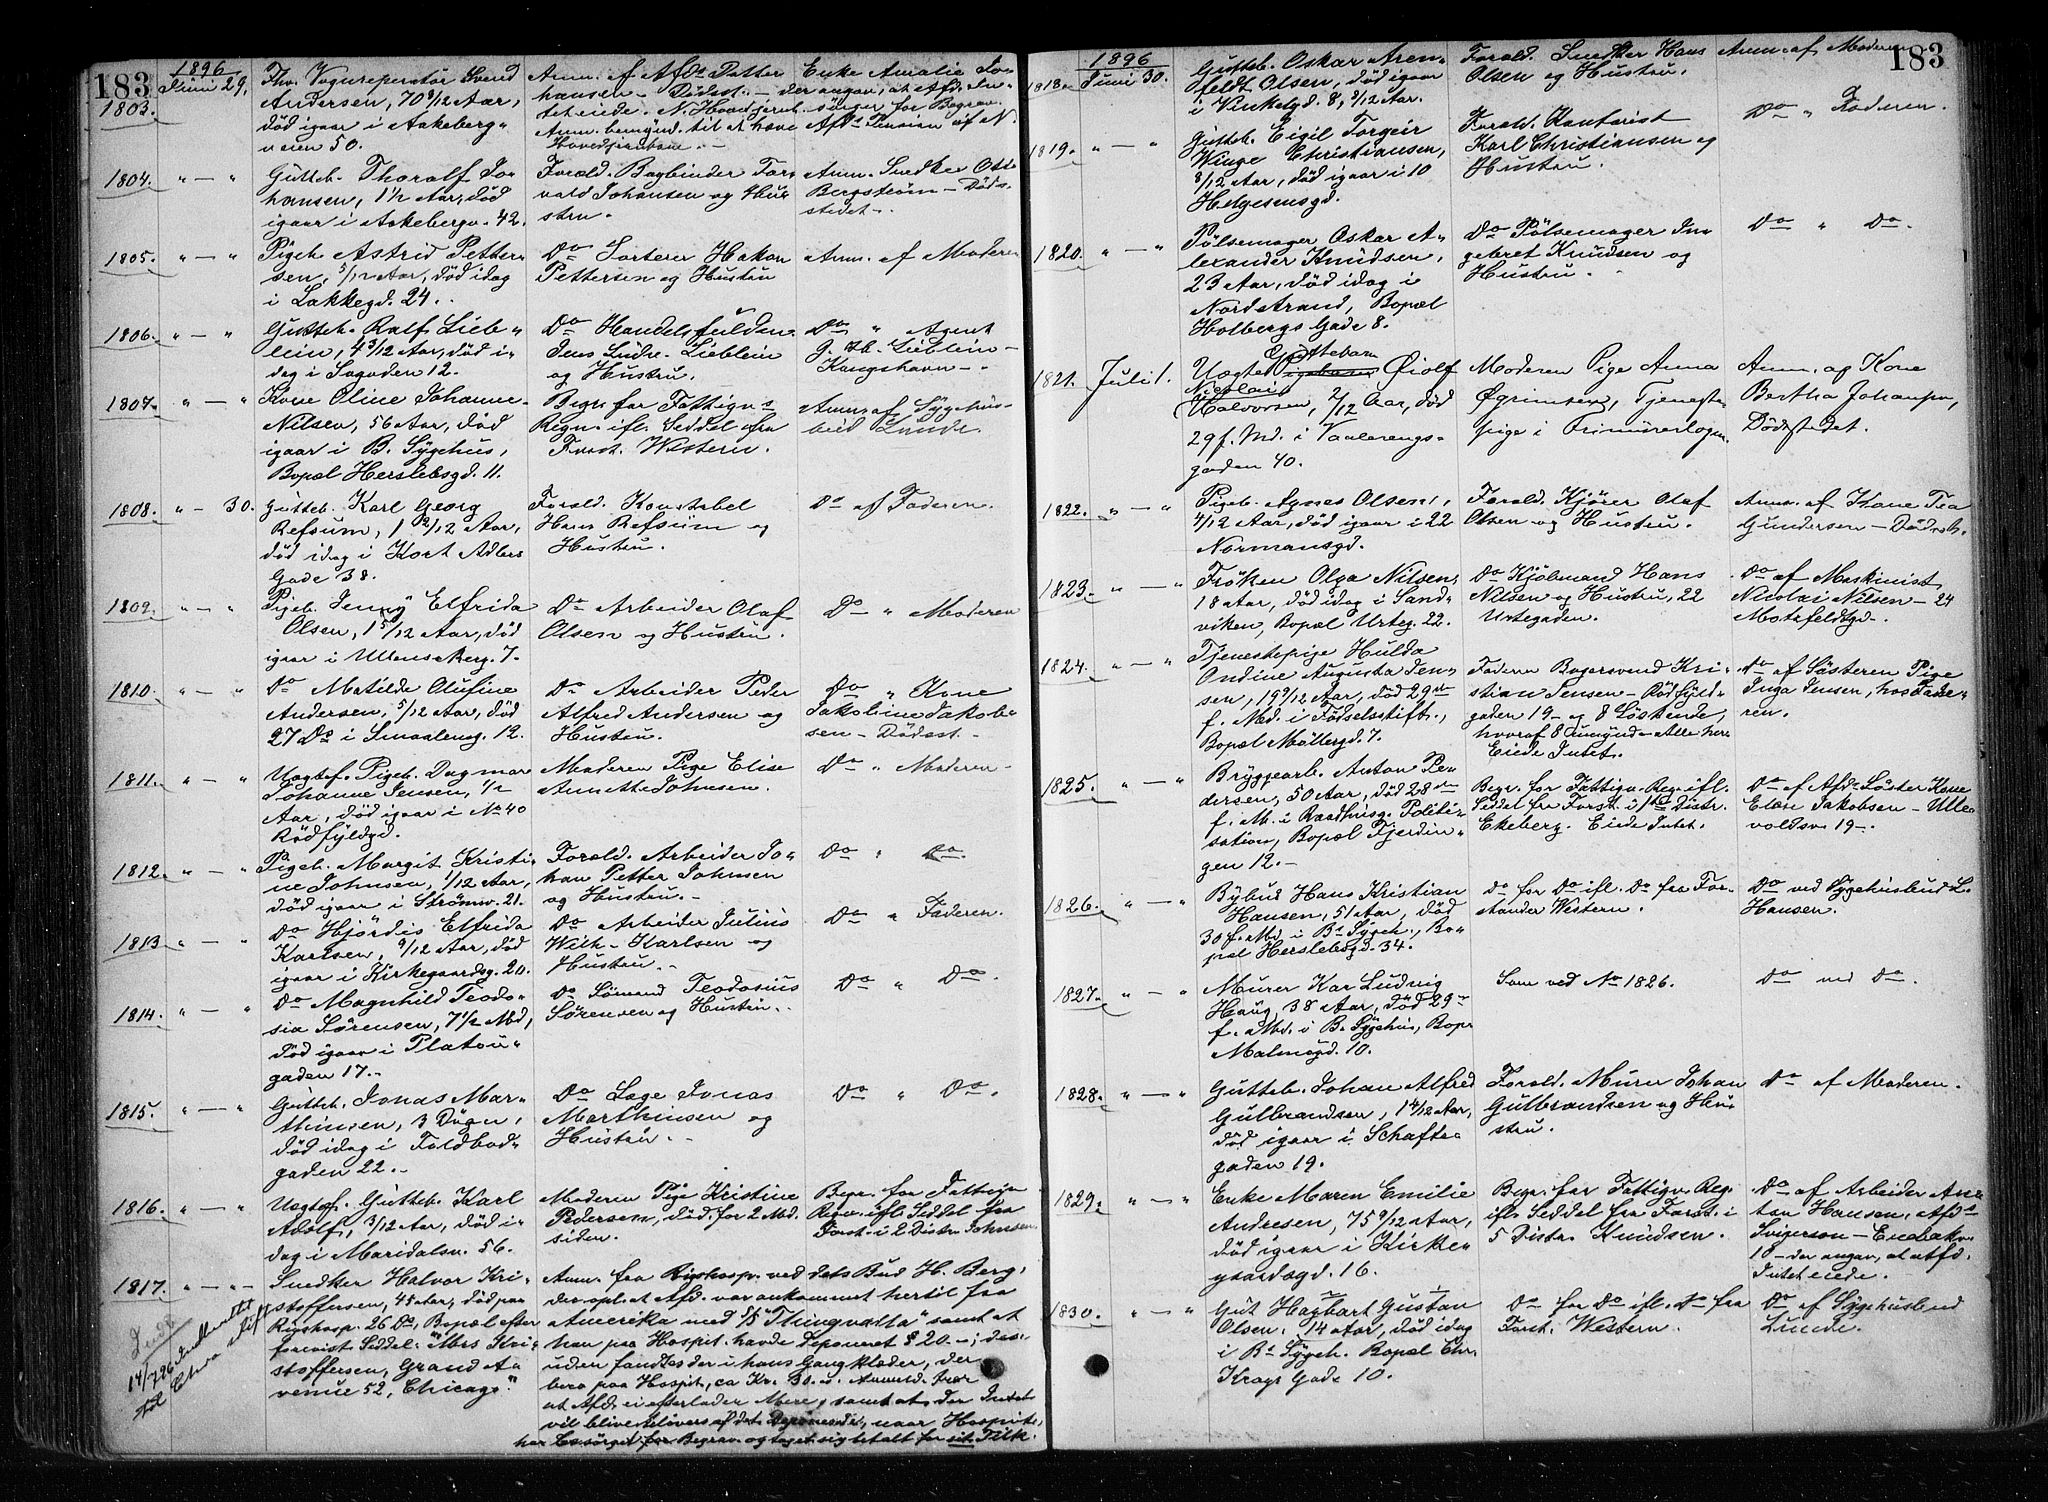 183
1896
1803. Juni 29.
Fhv. Vognreperatør Svend
Andersen, 70 8/12 Aar,
død igaar i Aakeberg-
veien 50.
Anm. af Afd. Datter
Enke Amalie Jo-
hansen - Dødsst. - der angav, at Afd. In-
tet eiede.
sørger for Begrav.
Anm. bemynd. til at hæve Afd.s Pension af N.
Hovedjernbane. -
1804. " — "
Gutteb. Thoralf Jo-
hansen, 1 1/2 Aar, død
igaar i Aakebergv. 42.
Foræld. Bogbinder Tor-
vald Johansen og Hu-
stru.
Anm. Snedker Ott
Bergstrøm - Døds-
stedet.
1805. " — "
Pigeb. Astrid Petter-
sen, 5/12 Aar, død idag
i Lakkegd. 24.
Do Sorterer Hakon
Pettersen og Hustru
Anm. af Moderen
1806. " — "
Gutteb. Ralf Lieb-
lein, 4 3/12 Aar, død i-
dag i Sagaden 12.
Do Handelsfuldm.
Jens Ludv. Lieblein
og Hustru.
Do " Agent
G. Th. Lieblein -
Kongshavn -
1807. " — "
Kone Oline Johanne
Nilsen, 56 Aar, død
igaar i B. Sygehus,
Bopæl Herslebsgd. 11.
Begr. for Fattigv.s
Regn. ifl. Seddel fra
Forst. Western.
Anm. af Sygehus-
bud Lunde.
1808. " - 30.
Gutteb. Karl Georg
Refsum, 1 2/12 Aar,
død idag i Kort Adlers
Gade 38.
Foræld. Konstabel
Hans Refsum og
Hustru.
Do af Faderen.
1809. " — "
Pigeb. Jenny Elfrida
Olsen, 1 5/12 Aar, død
igaar i Ullensakerg. 7.
Do Arbeider Olaf
Olsen og Hustru.
Do " Moderen
1810. " — "
Do Matilde Olufine
Andersen, 5/12 Aar, død
27 Do i Smaaleng. 12.
Do Arbeider Peder
Alfred Andersen og
Hustru.
Do " Kone
Jakoline Jakob-
sen - Dødsst. -
1811. " — "
Uægtef. Pigeb. Dagmar
Johanne Jensen, 1/2
Aar, død igaar i No 40
Rødfyldgd.
Moderen Pige Elise
Annette Johnsen.
Do " Moderen -
1812. " — "
Pigeb. Margit Kristi-
ne Johnsen, 1/12 Aar,
død igaar i Strømsv. 21.
Foræld. Arbeider Jo-
han Petter Johnsen
og Hustru. -
Do " Do.
1813 " — "
Do Hjördis Elfrida
Karlsen, 9/12 Aar, død
igaar i Kirkegaardsg. 20.
Do Arbeider Julius
Wilh. Karlsen og
Hustru. -
Do " Faderen.
1814. " — "
Do Magnhild Teodo-
sia Sørensen, 7 1/2 Md,
død igaar i Platou-
gaden 17. -
Do Sømand Teodosius
Sørensen og Hustru.
Do " Do.
1815. " — "
Gutteb. Jonas Mar-
thinsen, 3 Døgn,
død idag i Toldbod-
gaden 22. -
Do Læge Jonas
Marthinsen og
Hustru. -
Do " Do.
1816. " — "
Uægtef. Gutteb. Karl
Adolf, 3/12 Aar, død i-
dag i Maridalsv. 56.
Moderen Pige Kristine
Pedersen, død for 2 Md.
siden.
Begr. for Fattigv.
Regn. ifl. Seddel fra
Forst. i 2 Distr. Johnsen.
1817. " — "
Snedker Halvor Kri-
stoffersen, 45 Aar, død paa
Rigshosp. 26 Do, Bopæl efter
forevist Seddel: "Mrs Kri-
stoffersen, Grand A-
venue 52, Chicago."
Anm. fra Rigshosp. ved dets Bud H. Berg,
der opl. at Afd. var ankommet hertil fra
Amerika med S/S "Thingvalla" samt at
han paa Hospit. havde deponeret $ 20.-; des-
uden fandtes der i hans Gangklæder, der
bero paa Hospit, ca Kr. 30.
at Afd. ei efterlader Mere, samt at der Intet
vil blive tilovers af det Deponerede, naar Hospit.
har besørget for Begrav. og taget sig betalt for sit Tilk.
183
1896
1818. Juni 30.
Gutteb. Oskar Aren-
feldt Olsen, død igaar
i Vinkelgd. 8, 8/12 Aar.
Foræld. Snedker Hans
Olsen og Hustru.
Anm. af Moderen
1819. " — "
Gutteb. Eigil Torgeir
Winge Christiansen,
8/12 Aar, død igaar i 10
Helgesensgd.
Foræld. Kontorist
Karl Christiansen og
Hustru.
Do " Faderen.
1820. " — "
Pølsemager Oskar A-
lexander Knudsen,
23 Aar, død idag i
Nordstrand, Bopæl
Holbergs Gade 8.
Do Pølsemager In-
gebret Knudsen og
Hustru.
Do " Do.
1821. Juli 1.
Uægte Guttebarn Øiolf
Nicolai
Halvorsen, 2/12 Aar, død
29 f. Md. i Vaalerengs-
gaden 40.
Moderen Pige Anna
Øgrimsen, Tjeneste-
pige i Frimurerlogen.
Anm. af Kone
Bertha Johansen,
Dødsstedet.
1822. " — "
Pigeb. Agnes Olsen,
4/12 Aar, død igaar i 22
Normansgd.
Foræld. Kjører Olaf
Olsen og Hustru.
Anm. af Kone Tea
Gundersen - Dødsst.
1823. " — "
Frøken Olga Nilsen,
18 Aar, død idag i Sand-
viken, Bopæl Urteg. 22.
Do Kjøbmand Hans
Nilsen og Hustru, 22
Urtegaden.
Do af Maskinist
Nicolai Nilsen - 24
Motzfeldtsgd -.
1824. " — "
Tjenestepige Hulda
Ondine Augusta Jen-
sen, 19 9/12 Aar, død 29de
f. Md. i Fødselsstift.,
Bopæl Møllergd. 7.
Faderen Bagersvend Kri-
stian Jensen - Rødfyld-
gaden 19 - og 8 Søskende,
hvoraf 8 Umynd. - Alle her.
Eiede Intet.
Do af Søsteren Pige
Inga Jensen, hos Fade-
ren.
1825. " — "
Bryggearb. Anton Pe-
dersen, 50 Aar, død 28de
f. M. i Raadhusg. Politi-
station, Bopæl Fjerdin-
gen 12. -
Begr. for Fattigv. Regn. ifl.
Seddel fra Forst. i 1ste Distr.
Ekeberg. Eiede Intet.
Do af Afd. Søster Kone
Elise Jakobsen - Ulle-
voldsv. 19 -.
1826. " — "
Bybud Hans Kristian
Hansen, 51 Aar, død
30 f. Md. i Bs Sygeh., Bo-
pæl Herslebsgd. 34.
Do for Do ifl. Do fra For-
stander Western.
Do ved Sygehusbud L.
Hansen.
1827. " — "
Murer Karl Ludvig
Haug, 38 Aar, død 29de
f. Md. i B. Sygehus, Bopæl
Malmøgd. 10.
Som ved No 1826.
Do ved Do.
1828. " — "
Gutteb. Johan Alfred
Gulbrandsen, 1 4/12 Aar,
død igaar i Schafte-
gaden 19.
Foræld. Murer Johan
Gulbrandsen og Hu-
stru.
Do af Moderen.
1829. " — "
Enke Maren Emilie
Andresen, 75 9/12 Aar,
død igaar i Kirke-
gaardsgd. 16.
Begr. for Fattigv. Reg.
ifl. Seddel fra Forst. i
5 Distr. Knudsen.
Do af Arbeider An-
ton Hansen, Afd.s
Svigersøn -
18 - der angav, at Afd.
Intet eiede.
1830. " — "
Gut Hagbart Gustav
Olsen, 14 Aar, død idag
i Bs Sygeh. Bopæl Chr.
Krogs Gade 10.
Do for Do ifl. Do fra
Forst. Western.
Do af Sygehusbud
Lunde.